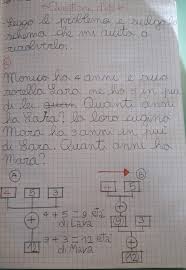 Leggo il problema e scelgo lo
schema che mi aiuta a
risolverlo.
A
Monica ha 4 anni e sua
sorella Sara ne ha 5 in più
di lei. Quanti anni
ha Sara? La loro cugina
Mara ha 3 anni in più
di Sara. Quanti anni ha
Mara?
A B
4 5 3
+ 4 + 5 = 9 età
di Sara
9 + 3 = 12 età
di Mara
+
12
4 5
+ 3
+
12